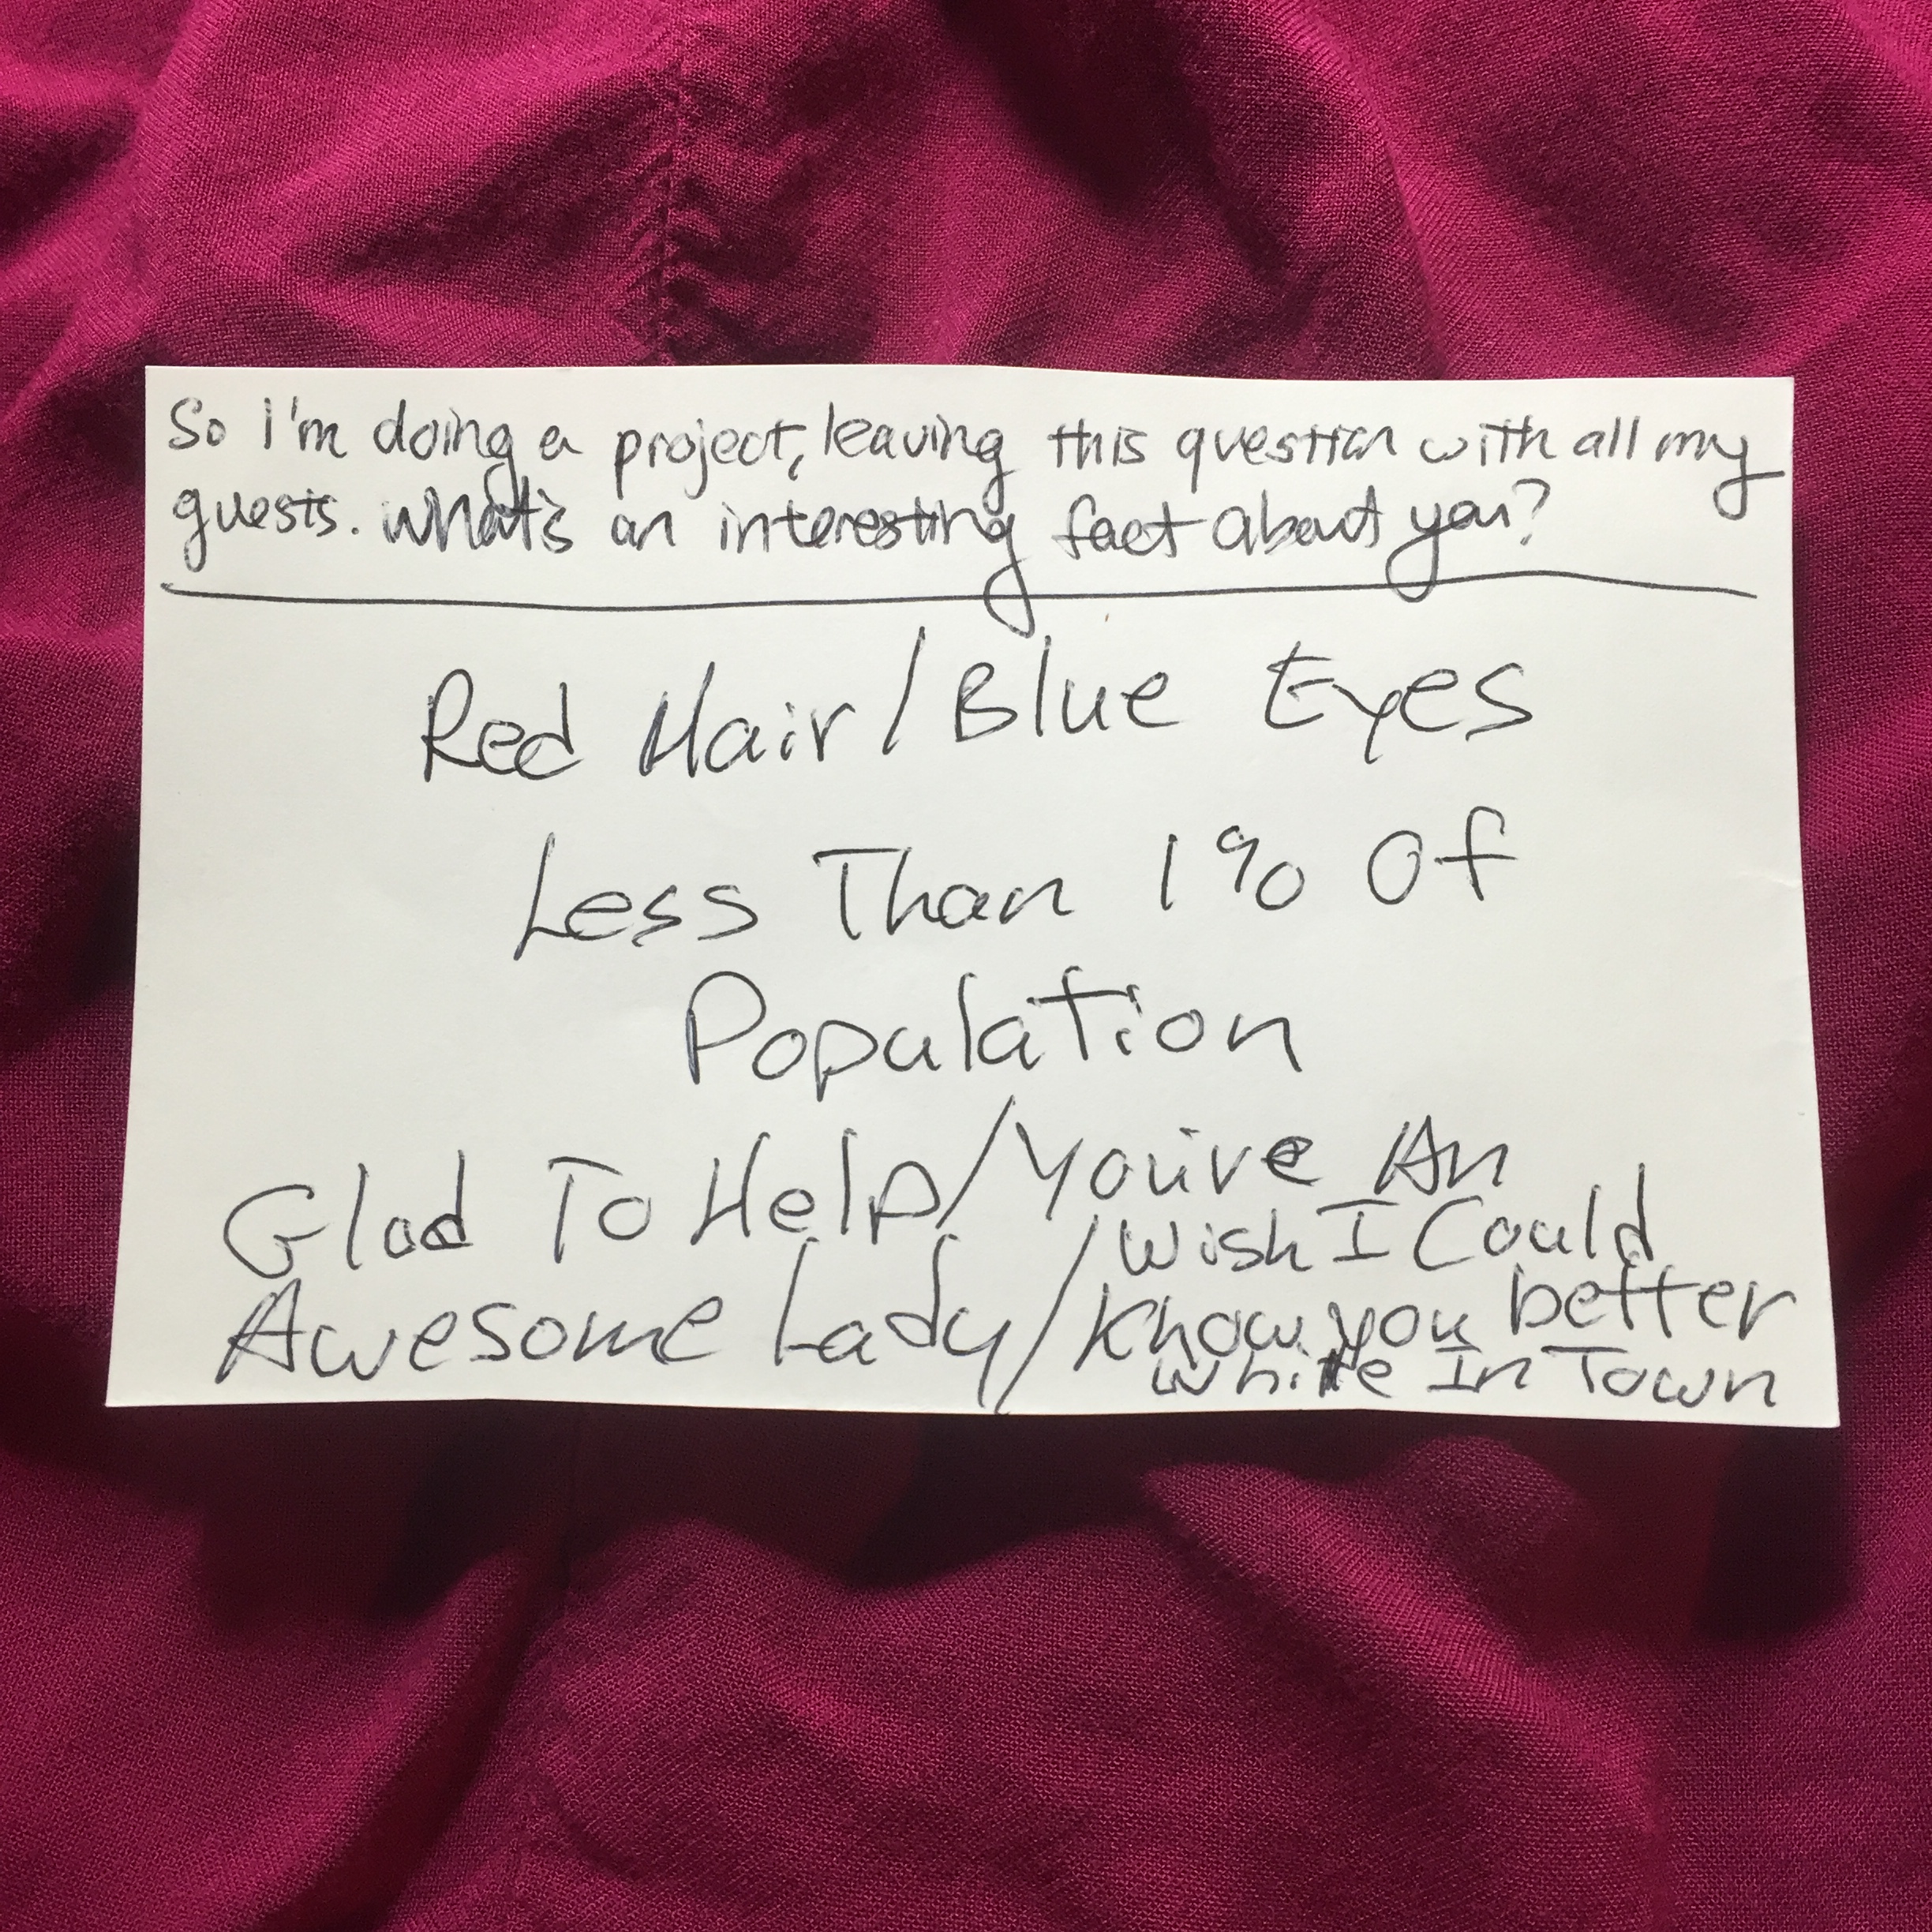 So I'm doing a project, leaving this question with all my
guests. What's an interesting fact about you?
Red Hair/Blue Eyes
Less Than 1% Of
Population
Glad To Help/You'ive An
Awesome Lady/Wish I Could
Know you better
While In Town